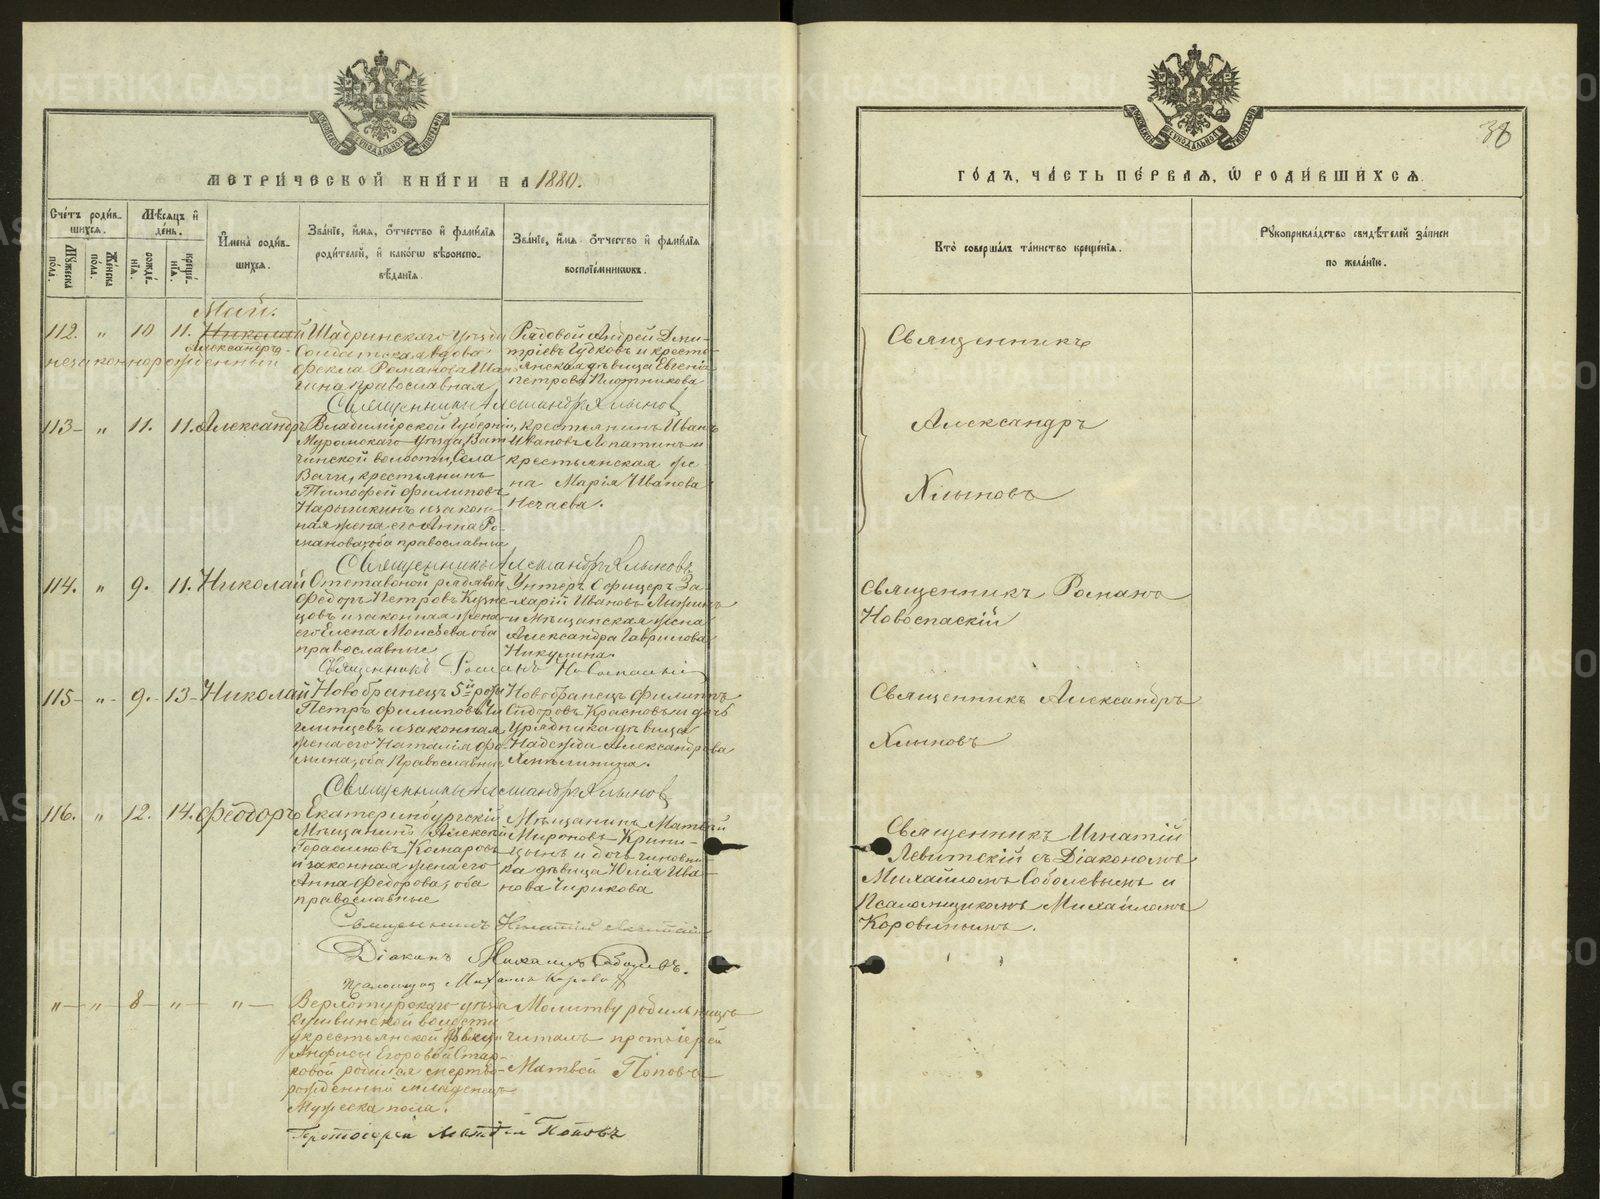 МЕТРИ́ЧЕСКОЙ КНИ́ГИ НА 1880.
Сче́тъ роди́в-
шихся.
Мѣ́сяцъ и҆
де́нь.
Мꙋжеска
по́ла.
Же́нска
по́ла.
рожде́-
нїя.
креще́-
нїя.
И҆мена̀ роди́в-
шихся.
Зва́нїе, и҆́мя, ѻ҆́тчество и҆ фами́лїя
роди́телей, и҆ како́гѡ вѣроиспо-
вѣ́данїя.
Зва́нїе, и҆́мя ѻ҆́тчество и҆ фами́лїя
воспрїе́мникѡвъ.
Май.
112. " 10 11. Николай
Александръ
незаконнорожденный
Шадринскаго уѣзда
Солдатская вдова
Фекла Романова
православная
Рядовой Андрей Дми-
тріевъ Губковъ и кресть-
янская дѣвица Евгенія
Петрова Плотникова
Священникъ Александръ Хлыновъ
113 " 11. 11. Александръ
Владимірской Губерніи,
Муромскаго уѣзда, Ват-
чинской волости, Села
Вачи, крестьянинъ
Тимофей Филиповъ
Нарышкинъ и закон-
ная жена его Анна Ро-
манова, оба православные
крестьянинъ Иванъ
Ивановъ Лопатинъ и
крестьянская же-
на Марія Иванова
Нечаева.
Священникъ Александръ Хлыновъ
114. " 9. 11. Николай
Отставной рядовой
Федоръ Петровъ Кузне-
цовъ и законная жена
его Елена Моисеева оба
православные
Унтеръ Офицеръ За-
харій Ивановъ
и Мѣщанская жена
Александра Гаврилова
Никулина.
Священникъ Романъ Новоспаскій
115 " 9. 13 Николай
Новобранецъ 5й роты
Петръ Филиповъ
и законная
жена его Наталія Фо-
мина, оба Православные
Новобранецъ Филиппъ
Сидоровъ Красновъ и дочь
Урядника дѣвица
Надежда Александрова
Священникъ Александръ Хлыновъ
116. " 12. 14. Феодоръ
Екатеринбургскій
Мѣщанинъ Алексѣй
Герасимовъ Комаровъ
и законная жена его
Анна Федорова, оба
православные
Мѣщанинъ Матвѣй
Мироновъ Крини-
цынъ и дочь чиновни-
ка дѣвица Юлія Ива-
нова Чирикова
Священникъ Игнатій Левитскій
Діаконъ Михаилъ Соболевъ.
Псаломщикъ Михаилъ Коровинъ
" " 8 " "
Верхотурскаго уѣзда
Кушвинской волости
у крестьянской дѣвицы
Анфисы Егоровой Стар-
ковой родился мертво-
рожденный младенецъ
Мужеска пола.
Молитву родильницѣ
читалъ протоіерей
Матвѣй Поповъ
Протоіерей Матвій Поповъ
38
ГО́ДЪ, ЧА́СТЬ ПЕ́РВАЯ, Ѡ҆ РОДИ́ВШИХСЯ.
Кто̀ соверша́лъ та́инство креще́нїя.
Рꙋкоприкла́дство свидѣ́телей за́писи
по жела́нїю.
Священникъ
Александръ
Хлыновъ
Священникъ Романъ
Новоспаскій
Священникъ Александръ
Хлыновъ
Священникъ Игнатій
Левитскій съ Діакономъ
Михайломъ Соболевымъ и
Псаломщикомъ Михайломъ
Коровинымъ.
METRIKI.GASO-URAL.RU